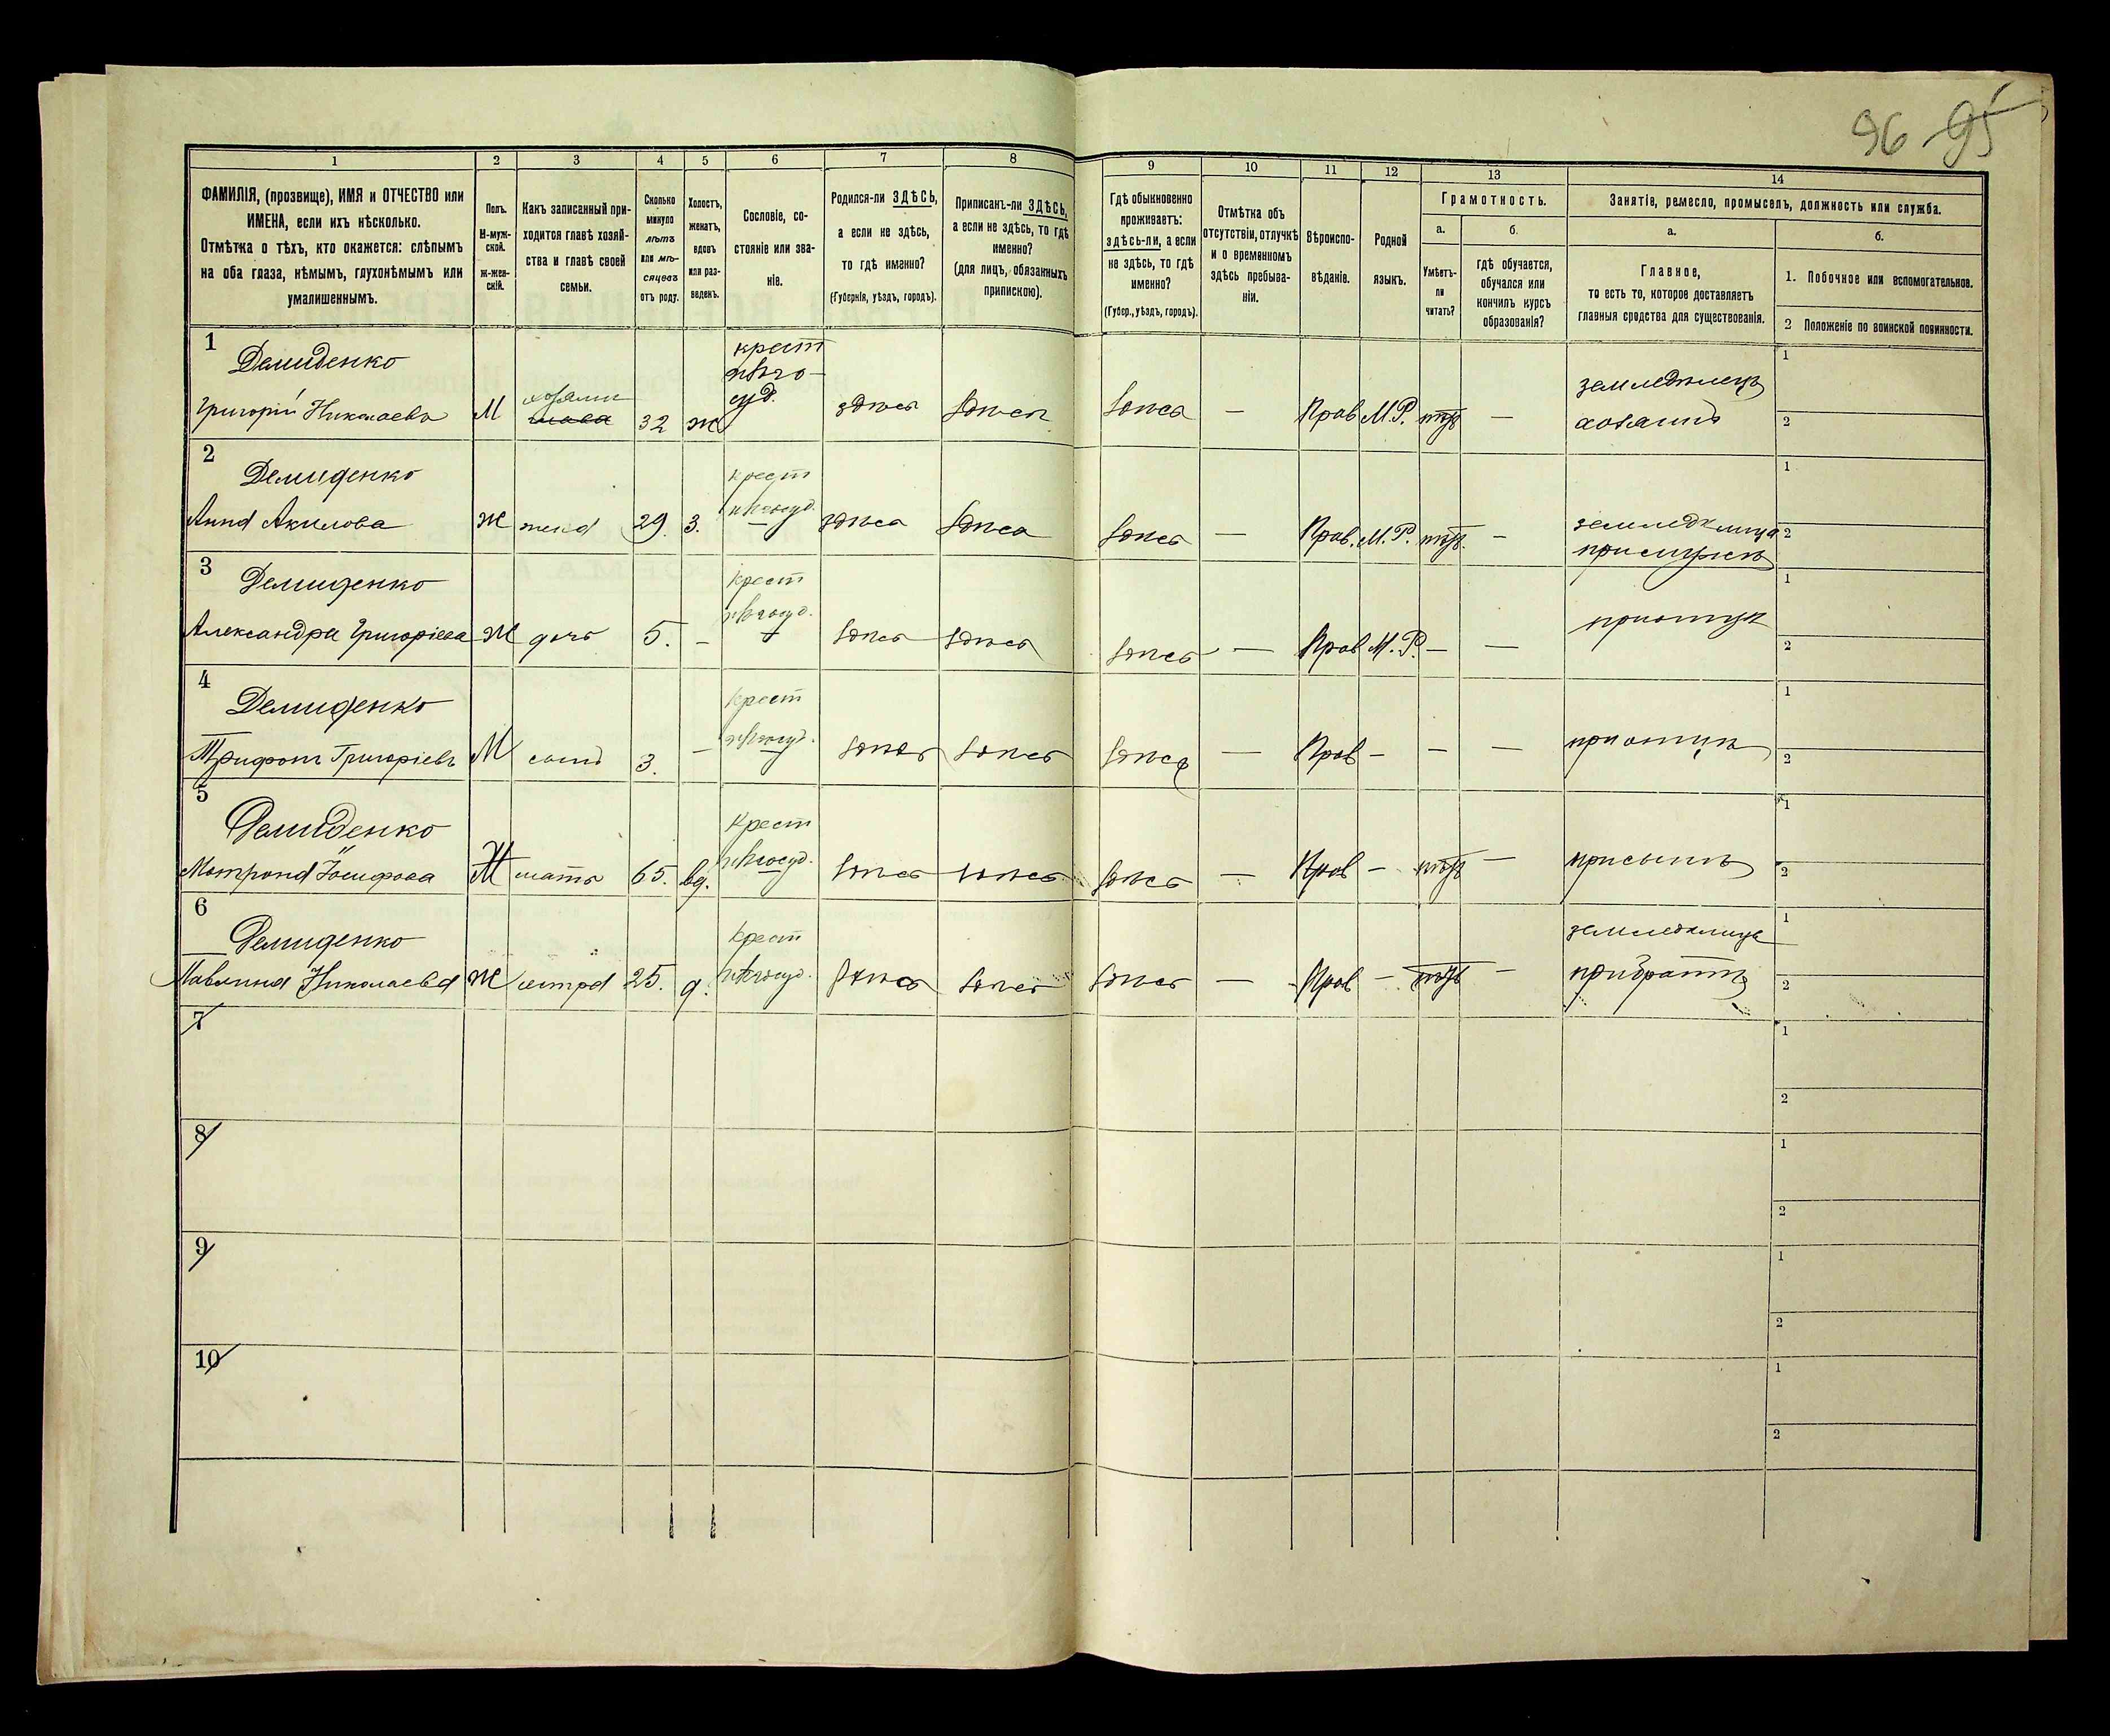 96 95
1 2 3 4 5 6 7 8 9 10 11 12 13 14
ФАМИЛІЯ, (прозвище), ИМЯ и ОТЧЕСТВО или
ИМЕНА, если ихъ нѣсколько.
Отмѣтка о тѣхъ, кто окажется: слѣпымъ
на оба глаза, нѣмымъ, глухонѣмымъ или
умалишеннымъ.
Полъ.
М-муж-
ской.
ж-жен-
скій.
Какъ записанный при-
ходится главѣ хозяй-
ства и главѣ своей
семьи.
Сколько
минуло
лѣтъ
или мѣ-
сяцевъ
отъ роду.
Холостъ,
женатъ,
вдовъ
или раз-
веденъ.
Сословіе, со-
стояніе или зва-
ніе.
Родился-ли ЗДѢСЬ,
а если не здѣсь,
то гдѣ именно?
(Губернія, уѣздъ, городъ).
Приписанъ-ли ЗДѢСЬ,
а если не здѣсь, то гдѣ
именно?
(для лицъ, обязанныхъ
припискою).
Гдѣ обыкновенно
проживаетъ:
здѣсь-ли, а если
не здѣсь, то гдѣ
именно?
(Губер., уѣздъ, городъ).
Отмѣтка объ
отсутствіи, отлучкѣ
и о временномъ
здѣсь пребыва-
ніи.
Вѣроиспо-
вѣданіе.
Родной
языкъ.
Грамотность.
а.
Умѣетъ-
ли
читать?
б.
гдѣ обучается,
обучался или
кончилъ курсъ
образованія?
Занятіе, ремесло, промыселъ, должность или служба.
а.
Главное,
то есть то, которое доставляетъ
главныя средства для существованія.
б.
1. Побочное или вспомогательное.
2 Положеніе по воинской повинности.
1
Демиденко
крест
Григорій Николаевъ М хозяинъ 32 ж здѣсь здѣсь здѣсь — Прав М.Р. — земледѣлецъ
хозяинъ
1
2
2
Демиденко
крест
Анна Акилова Ж жена 29. З. здѣсь здѣсь здѣсь — Прав. М.Р. — земледѣлица
при мужѣ
1
2
3
Демиденко
крест
Александра Григоріева Ж дочь 5. — здѣсь здѣсь здѣсь — Прав М.Р. — — при отцѣ
1
2
4
Демиденко
крест
Трифонъ Григоріевъ М сынъ 3. — здѣсь здѣсь здѣсь — Прав — — — при отцѣ
1
2
5
Демиденко
Крест
Матрона Іосифова Ж мать 65. вд. здѣсь здѣсь здѣсь — Прав — — при сынѣ
1
2
6
Демиденко
крест
Павлина Николаева Ж сестра 25. д. здѣсь здѣсь здѣсь — Прав — — земледѣлица
при братѣ
1
2
7
1
2
8
1
2
9
1
2
10
1
2